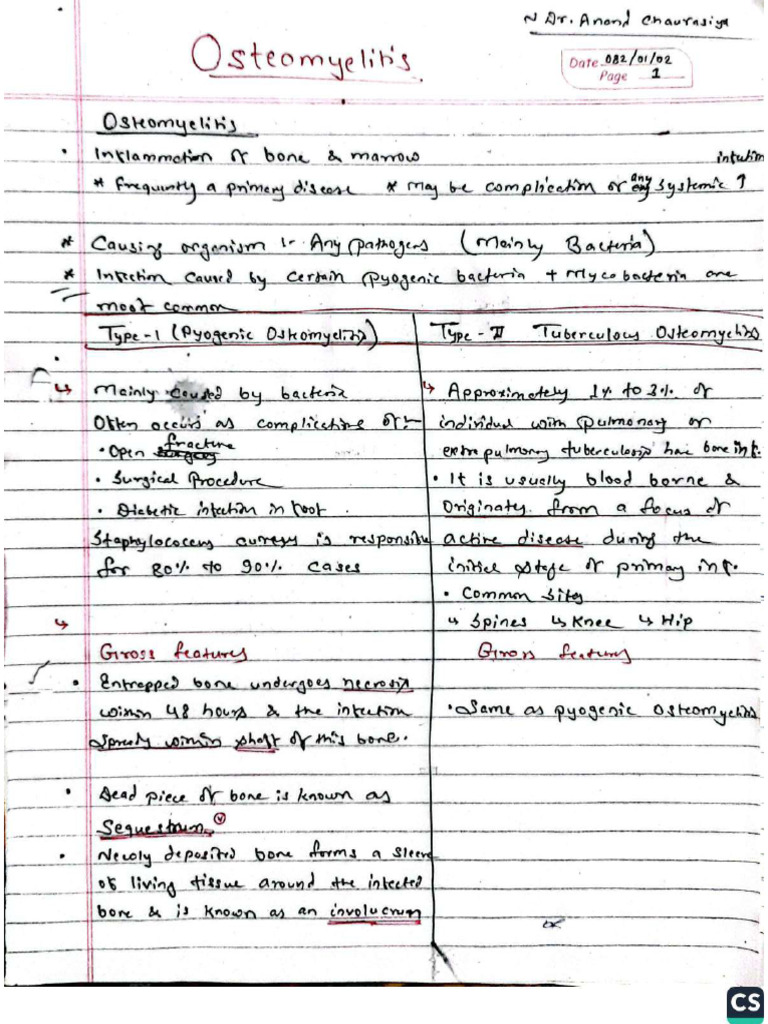 ~ Dr. Anand Chaurasiya
Osteomyelitis
Date 082/01/02
Page 1
Osteomyelitis
• Inflammation of bone & marrow
* Frequently a primary disease * May be complication of any systemic ↑ infection
* Causing organism :- Any pathogens (Mainly Bacteria)
* Infection caused by certain pyogenic bacteria + Mycobacteria are
most common
Type-1 (Pyogenic Osteomyelitis)
↳ Mainly caused by bacteria
Often occurs as complication of :-
• Open fracture
• Surgical Procedure
• Diabetic infection in foot.
Staphylococcus aureus is responsible
for 80% to 90% cases
↳
Gross features
• Entrapped bone undergoes necrosis
within 48 hours & the infection
spreads within shaft of this bone.
• Dead piece of bone is known as
Sequestrum.
• Newly deposited bone forms a sleeve
of living tissue around the infected
bone & is known as an involucrum
Type - II Tuberculous Osteomyelitis
↳ Approximately 1% to 3% of
individual with pulmonary or
extrapulmonary tuberculosis have bone inf.
• It is usually blood borne &
originates from a focus of
active disease during the
initial stage of primary inf.
• Common sites
↳ Spines ↳ Knee ↳ Hip
Gross features
• Same as pyogenic osteomyelitis
CS